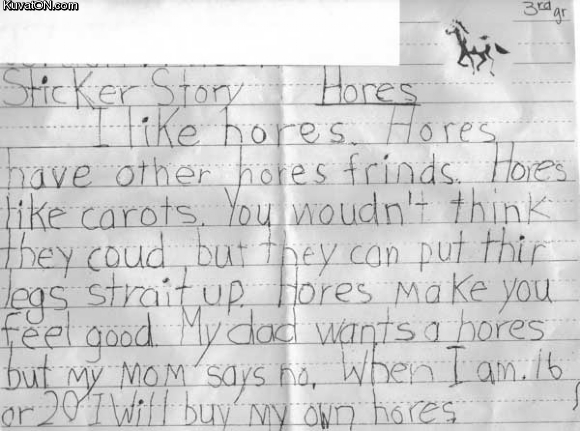 KuvatON.com
3rd gr
Sticker Story Hores
I like hores. Hores
have other hores frinds. Hores
like carots. You woudn't think
they coud but they can put thir
legs strait up. Hores make you
feel good. My dad wants a hores
but my mom says no. When I am. 16
or 20 I will buy my own hores